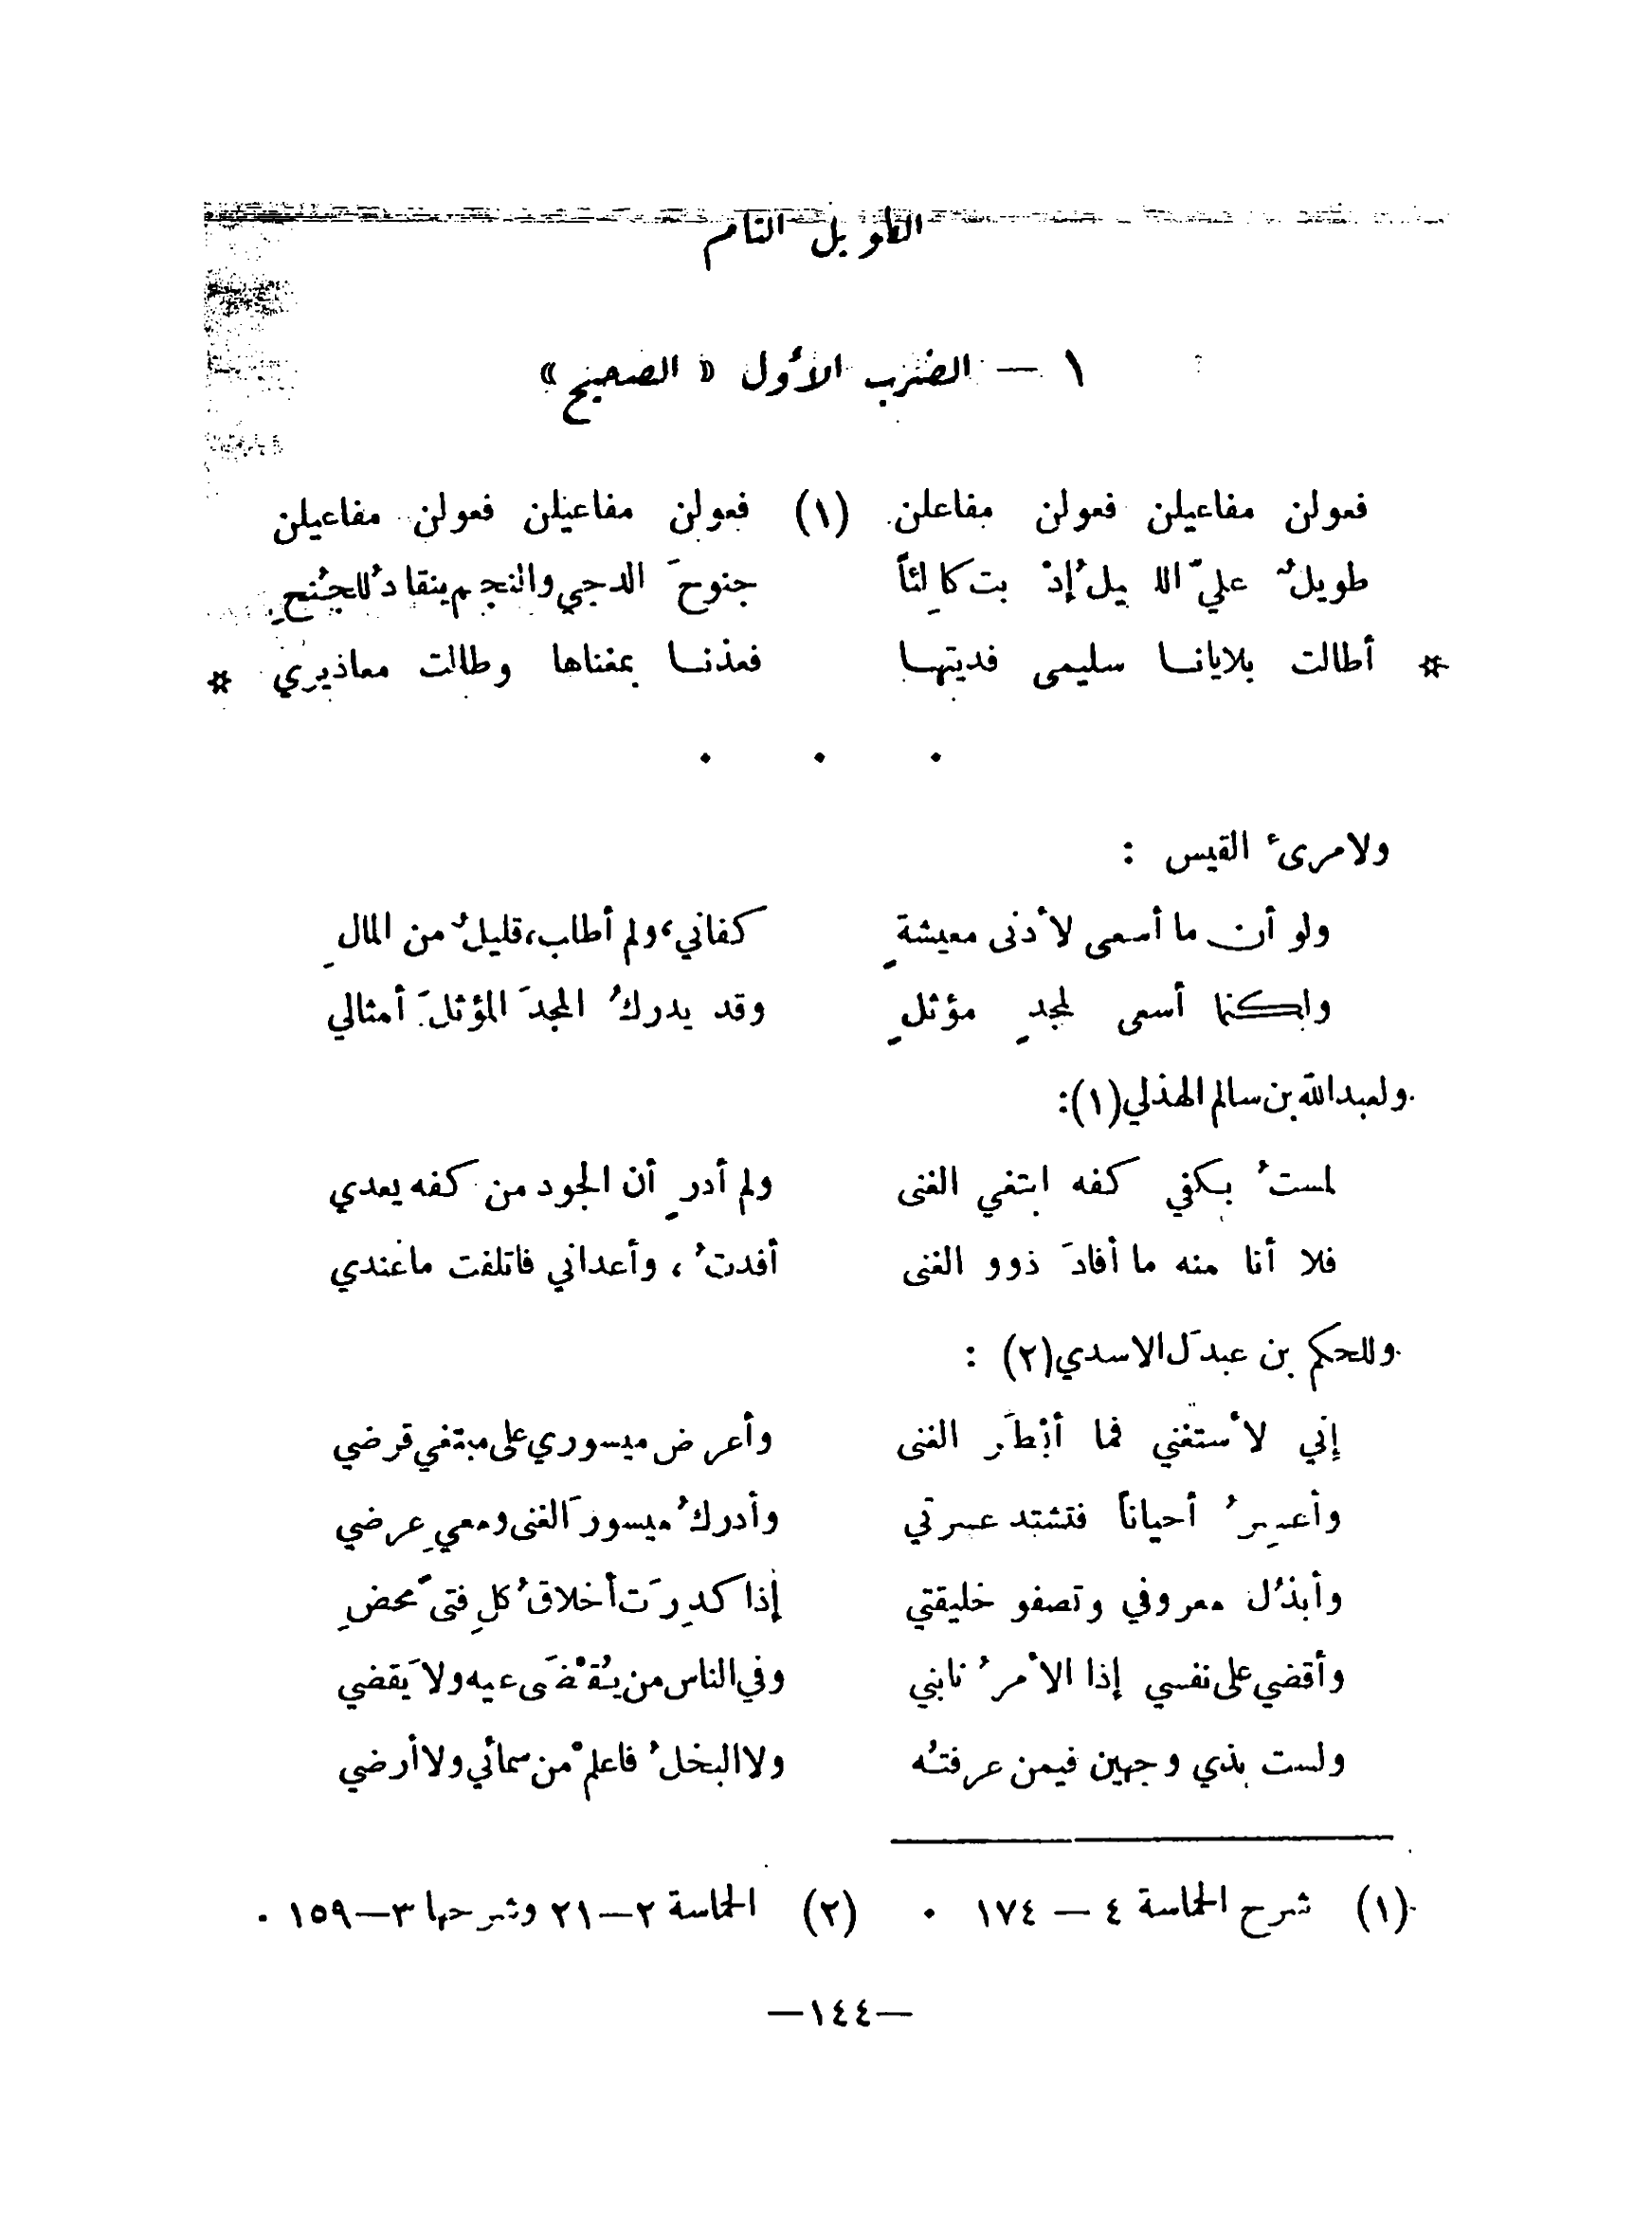 الطويل التام
١ — الضرب الأول « الصحيح »
فعولن مفاعيلن فعولن مفاعلن (١) فعولن مفاعيلن فعولن مفاعيلن
طويلٌ عليّ الليلُ إذْ بت كالئاً جنوحَ الدجي والنجم ينقادُ للجُنحِ
* أطالت بلايانا سليمى فديتها فعذنا بمغناها وطالت معاذيري *
. . .
ولامرىء القيس :
ولو أن ما أسعى لأدنى معيشةٍ كفاني، ولم أطلب، قليلٌ من المالِ
ولكنما أسعى لمجدٍ مؤثلٍ وقد يدركُ المجدَ المؤثلَ أمثالي
ولعبدالله بن سالم الهذلي (١):
لمستُ بكفي كفه ابتغي الغنى ولم أدرِ أن الجود من كفه يعدي
فلا أنا منه ما أفادَ ذوو الغنى أفدتُ ، وأعداني فاتلفت ماعندي
وللحكم بن عبدَل الاسدي (٢) :
إني لأستغني فما أبْطَر الغنى وأعرض ميسوري على مبتغي قرضي
وأعسِرُ أحياناً فتشتد عسرتي وأدركُ ميسورَ الغنى ومعي عِرضي
وأبذُل معروفي وتصفو خليقتي إذا كدِرَت أخلاقُ كلِ فتىً محضِ
وأقضي على نفسي إذا الأمرُ نابني وفي الناس من يُقْضَى عيه ولا يَقضي
ولست بذي وجهين فيمن عرفتُه ولا البخلُ فاعلمْ من سمائي ولا أرضي
(١) شرح الحماسة ٤ — ١٧٤ . (٢) الحماسة ٢—٢١ وشرحها ٣—١٥٩ .
—١٤٤—